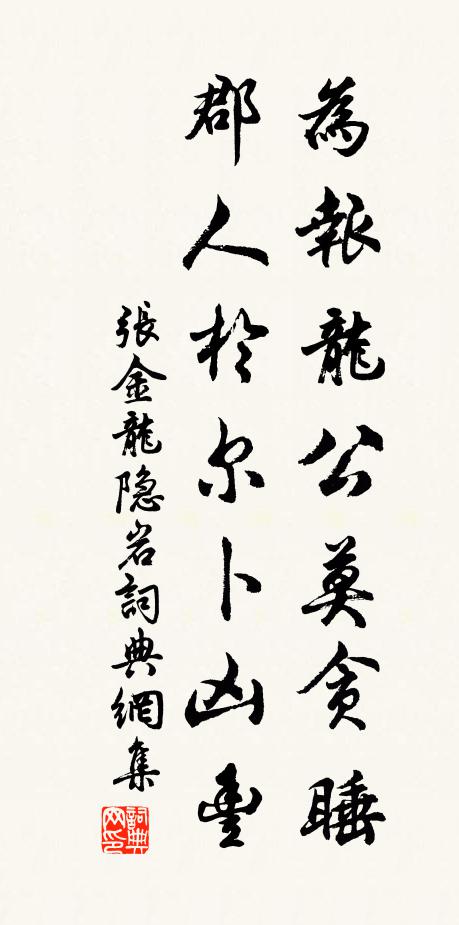 為報龍公莫貪睡
郡人於尔卜凶豊
張金龍隐岩詞典網集
詞典网印